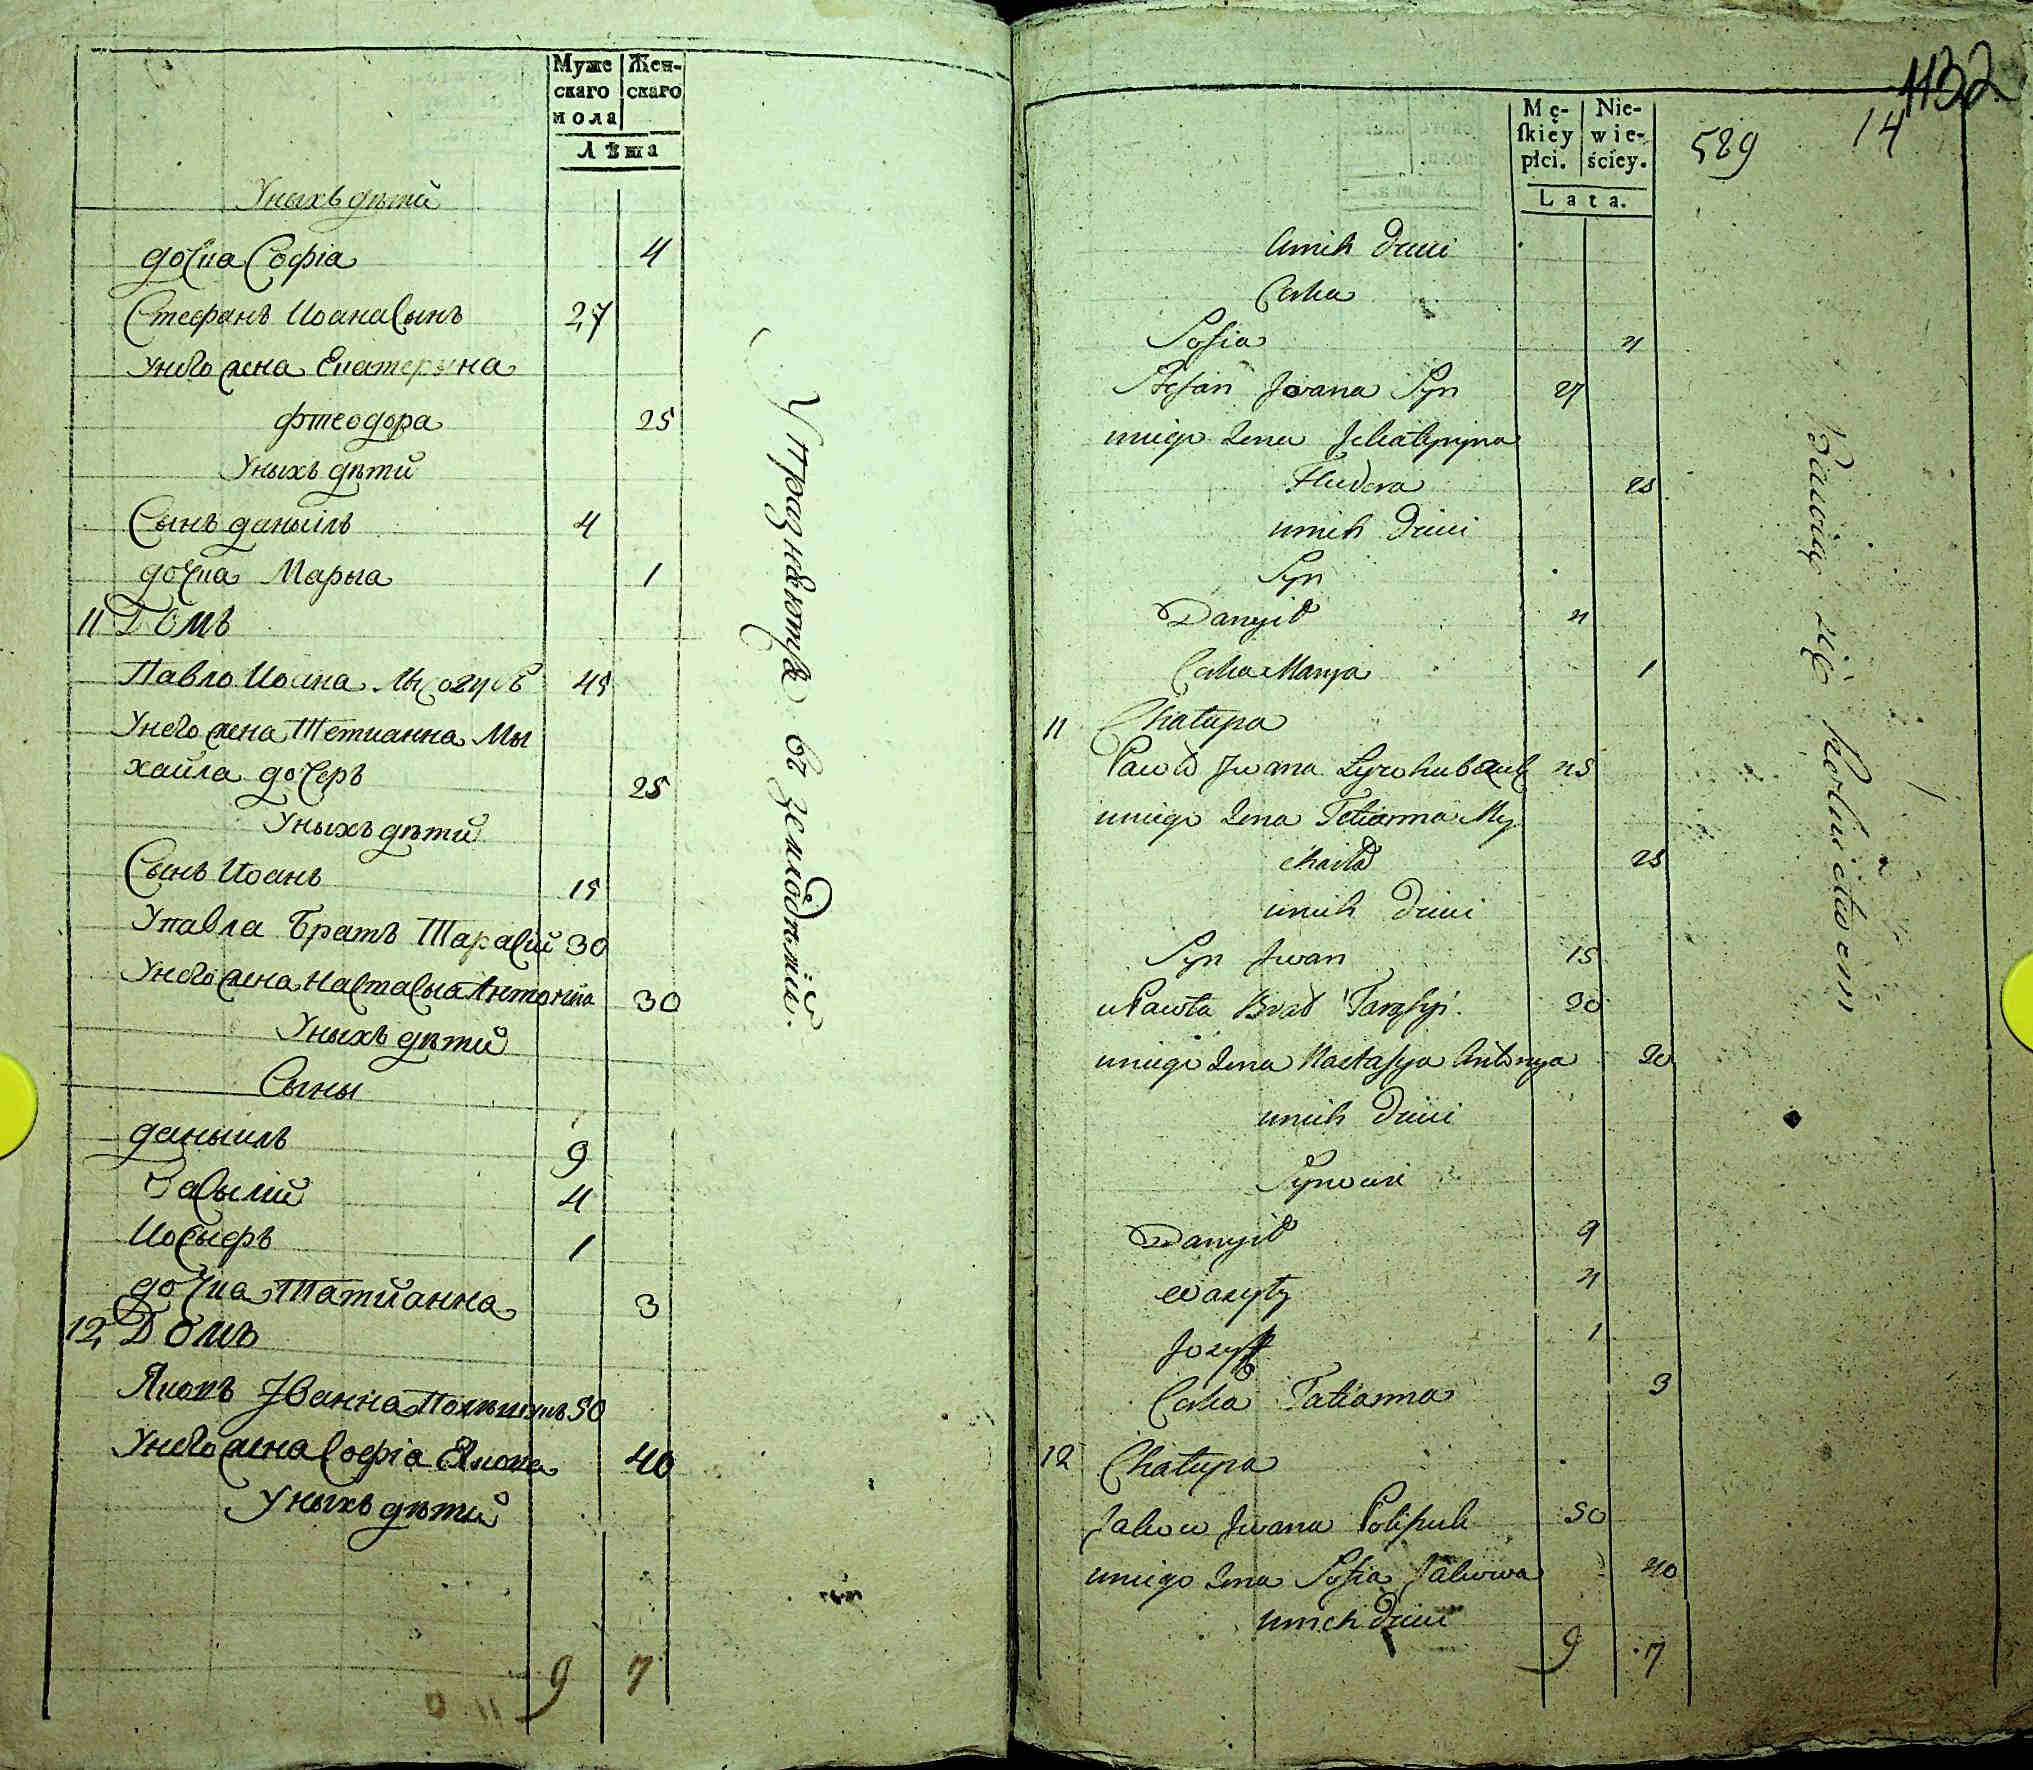 Муже
скаго
пола
Жен-
скаго
Лѣта
Уныхъ дѣтй
дочка Софія 4
Стефанъ Иоана Сынъ 27
Унего жена Екатерына
фтеодора 25
Уныхъ дѣти
Сынъ даныілъ 4
дочка Марыа 1
11 Домъ
Павло Иоана Лысогубъ 45
Унего жена Тетианна Мы
хайла дочеръ 25
Уныхъ дѣтй
Сынъ Иоанъ 15
Упавла Братъ Тарасій 30
Унего жена Настасыа Антонйа 30
Уныхъ дѣтй
Сыны
даныилъ 9
Васылій 4
Иосыфъ 1
дочка Татйанна 3
12 Домъ
Якопъ Јванна 50
Унего жена Софіа Якопа 40
Уныхъ дѣтй
9 7
Упражняются въ земледѣліи.
1132
14
589
Mę-
ſkiéy
płci.
Nie-
wie-
ściey.
Lata.
Unich dzieci
Corka
Sofia 4
Stefan Jwana Syn 27
uniego Zona Jekateryna
Fteudora 25
unich dzieci
Syn
Danyił 4
Corka Marya 1
11 Chałupa
Pawło Jwana Łysohub 45
uniego Zona Tetianna My
chaiła 25
unich dzieci
Syn Jwan 15
uPawła Brat Tarasyi 30
uniego Zona Nastasya Antonya 30
unich dzieci
Synowie
Danyił 9
Wasyly 4
Jozyf 1
Corka Tatianna 3
12 Chałupa
Jakow Jwana 50
uniego Zona Sofia Jakowa 40
unich dzieci
9 7
Bawią się rolnictwem